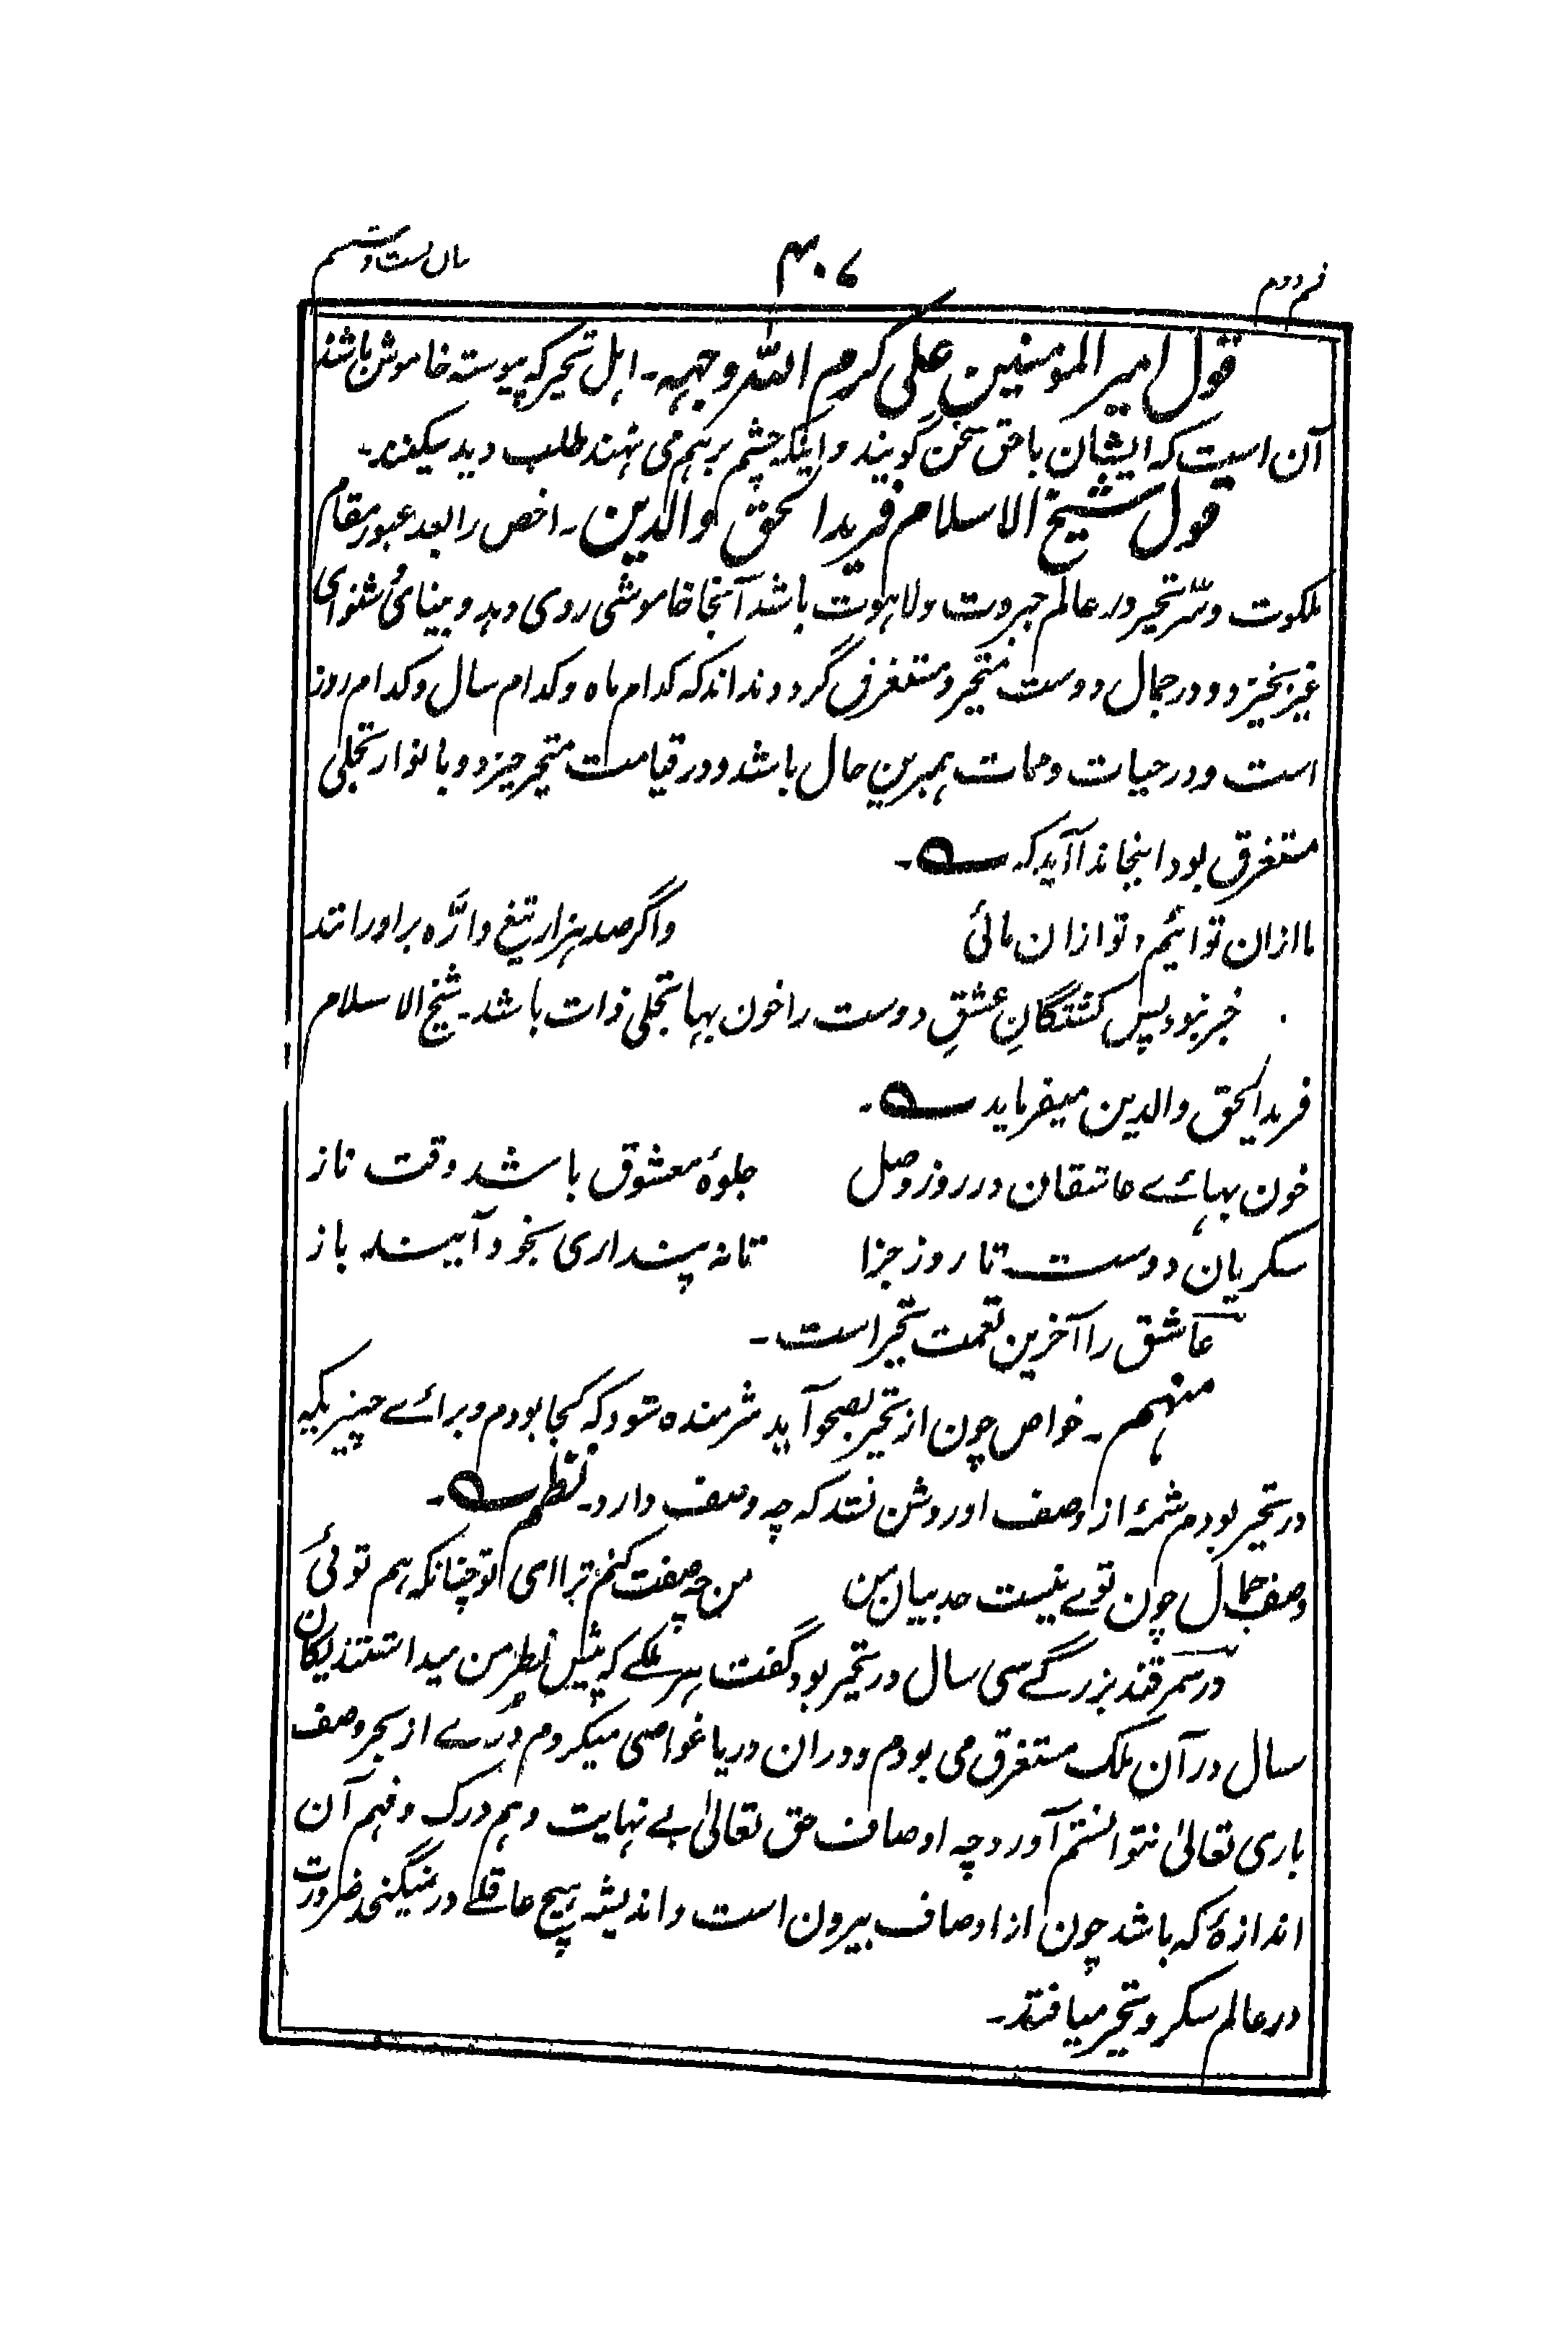 قسم دوم
۴۰۷
بیان بست و ششم
قول امیرالمومنین علی کرم اللہ وجہہ۔ اہل تحیر کہ پیوستہ خاموش باشند
آن است کہ ایشان باحق سخن گویند و اینکہ چشم برہم می نہند طلب دید میکنند۔
قول شیخ الاسلام فرید الحق والدین۔ اخص را بعد عبور مقام
ملکوت و سّر تحیر در عالم جبروت و لاہوت باشد آنجا خاموشی روی دہد و بینائی و شنوای
غیر بخیزد و در جمال دوست متحیر و مستغرق گردد نداند کہ کدام ماہ و کدام سال و کدام روز
است و در حیات و ممات ہمبرین حال باشد و در قیامت متحیر خیزد و با نوار تجلی
مستغرق بود اینجا ندا آید کہ ؎۔
ما ازان توائیم و تو ازان مائی
واگر صد ہزار تیغ و ارّہ بر او رانند
خبر نبود پس کشتگانِ عشقِ دوست را خون بہا تجلی ذات باشد۔ شیخ الاسلام
فرید الحق والدین میفرماید ؎۔
خون بہائے عاشقان در روز وصل
جلوۂ معشوق باشد وقت ناز
سکریان دوست تا روز جزا
تا نہ پنداری بخود آیند باز
عاشق را آخرین نعمت تحیر است۔
منہم۔ خواص چون از تحیر بصحو آید شرمندہ شود کہ کجا بودم و برائے چیزیکہ
در تحیر بودم شمۂ از وصف او روشن نشد کہ چہ وصف دارد۔ نظم ؎۔
وصف جمال چون توے نیست حد بیان من
من چہ صفت کنم ترا ای تو چنانکہ ہم توئی
در سمرقند بزرگے سی سال در تحیر بود گفت ہر ملکے کہ پیش نظر من میداشتند یکان
سال در آن ملک مستغرق می بودم و دران دریا غواصی میکردم دُرے از بحر وصف
باری تعالیٰ نتوانستم آورد چہ اوصاف حق تعالیٰ بے نہایت وہم درک و فہم آن
اندازۂ کہ باشد چون از اوصاف بیرون است و اندیشہ ہیچ عاقلے در نمیگنجد ضرورت
در عالم سکر و تحیر میافتد۔